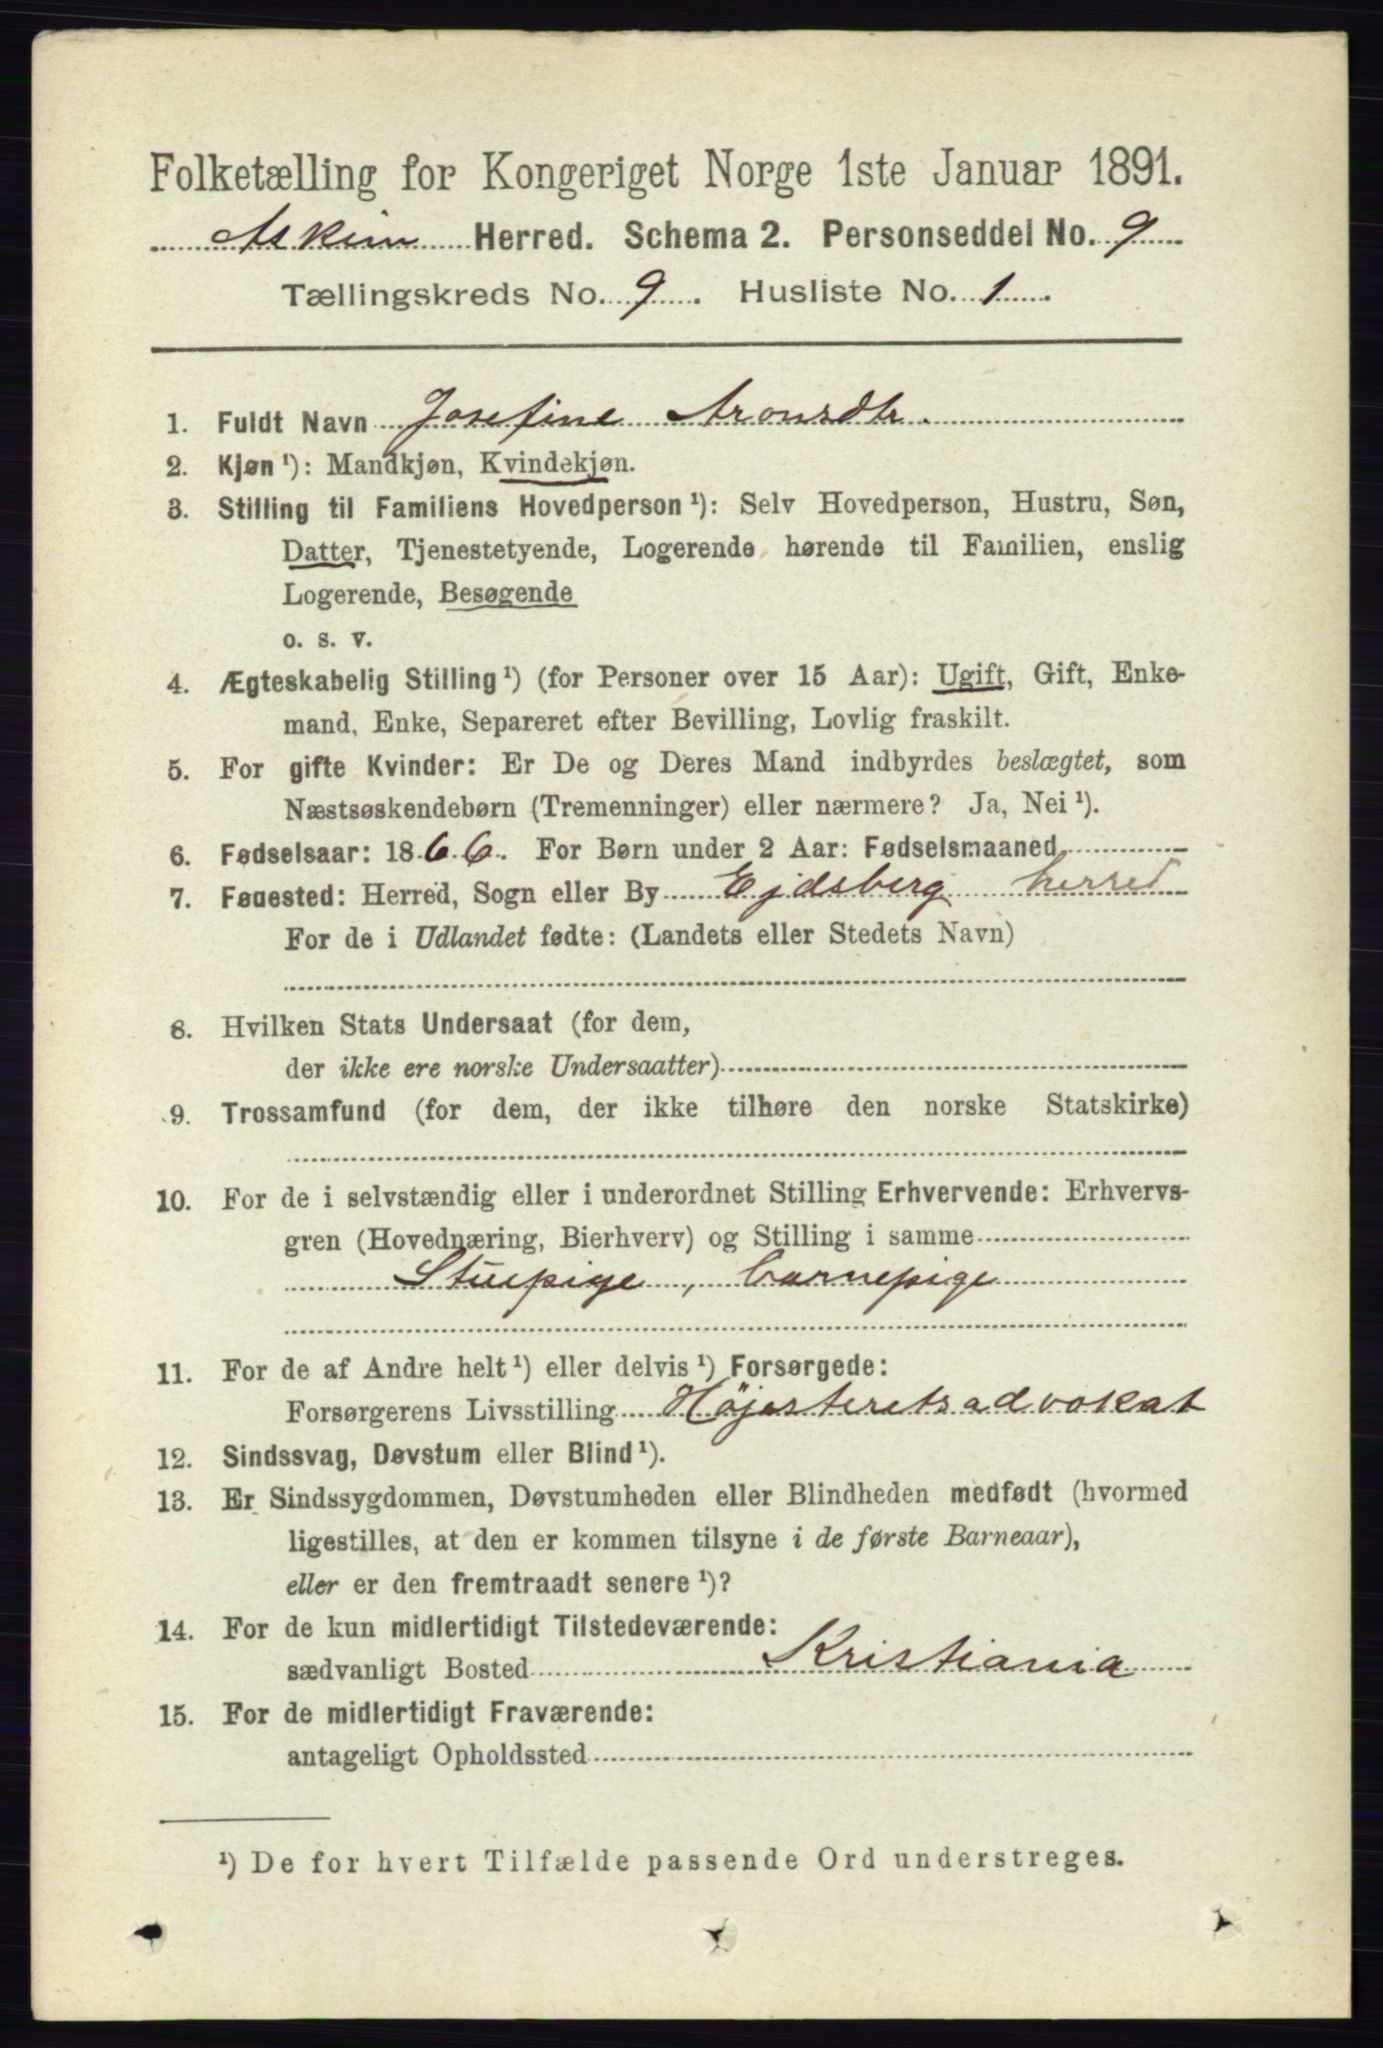 Folketælling for Kongeriget Norge 1ste Januar 1891.
Askim Herred. Schema 2. Personseddel No. 9
Tællingskreds No. 9. Husliste No. 1.
1. Fuldt Navn Josefine Aronsdtr.
2. Kjøn ¹): Mandkjøn, Kvindekjøn.
3. Stilling til Familiens Hovedperson ¹): Selv Hovedperson, Hustru, Søn,
Datter, Tjenestetyende, Logerende hørende til Familien, enslig
Logerende, Besøgende
o. s. v.
4. Ægteskabelig Stilling ¹) (for Personer over 15 Aar): Ugift, Gift, Enke-
mand, Enke, Separeret efter Bevilling, Lovlig fraskilt.
5. For gifte Kvinder: Er De og Deres Mand indbyrdes beslægtet, som
Næstsøskendebørn (Tremenninger) eller nærmere? Ja, Nei ¹).
6. Fødselsaar: 1866. For Børn under 2 Aar: Fødselsmaaned
7. Føuested: Herred, Sogn eller By Ejdsberg herred
For de i Udlandet fødte: (Landets eller Stedets Navn)
8. Hvilken Stats Undersaat (for dem,
der ikke ere norske Undersaatter)
9. Trossamfund (for dem, der ikke tilhøre den norske Statskirke)
10. For de i selvstændig eller i underordnet Stilling Erhvervende: Erhvervs-
gren (Hovednæring, Bierhverv) og Stilling i samme
Stuepige, barnepige
11. For de af Andre helt ¹) eller delvis ¹) Forsørgede:
Forsørgerens Livsstilling Højesteretsadvokat
12. Sindssvag, Døvstum eller Blind ¹).
13. Er Sindssygdommen, Døvstumheden eller Blindheden medfødt (hvormed
ligestilles, at den er kommen tilsyne i de første Barneaar),
eller er den fremtraadt senere ¹)?
14. For de kun midlertidigt Tilstedeværende:
sædvanligt Bosted Kristiania
15. For de midlertidigt Fraværende:
antageligt Opholdssted
¹) De for hvert Tilfælde passende Ord understreges.